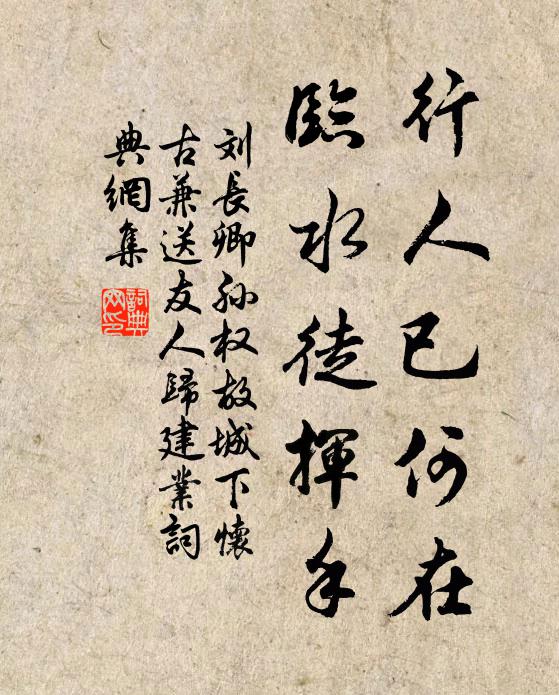 行人已何在
臨水徒揮手
刘長卿孙权故城下懷
古兼送友人歸建業詞
典網集
詞典
网印